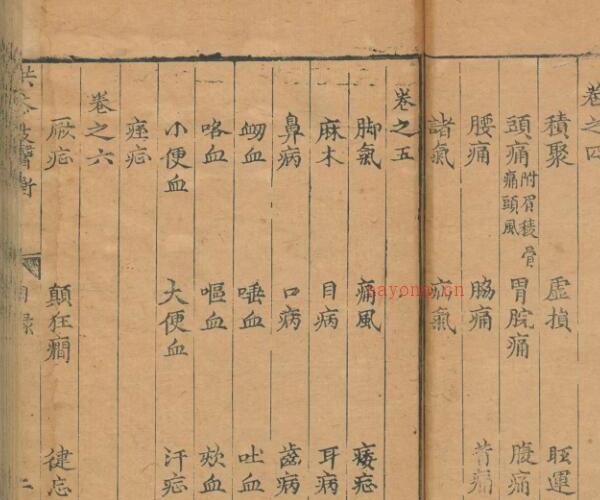 卷之四
積聚 虛損 眩運
頭痛 附眉稜骨痛頭風 胃脘痛 腹痛
腰痛 脇痛 背痛
諸氣 疝氣
卷之五
脚氣 痛風 痿疟
麻木 目病 耳病
鼻病 口病 齒病
衂血 唾血 吐血
咯血 嘔血 欬血
小便血 大便血 汗疟
痓疟
卷之六
厥疟 顛狂癎 健忘
目錄 二
sayona.cn